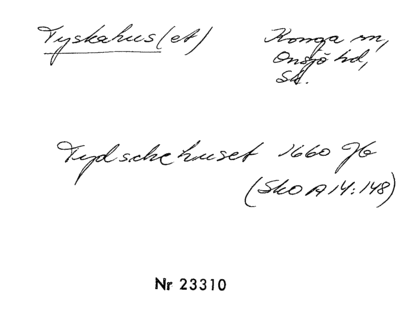 Tyskahus(et) Konga sn,
Onsjö hd,
Sk.
Tydschehuset 1660 Jb
(SkO A 14:148)
Nr 23310